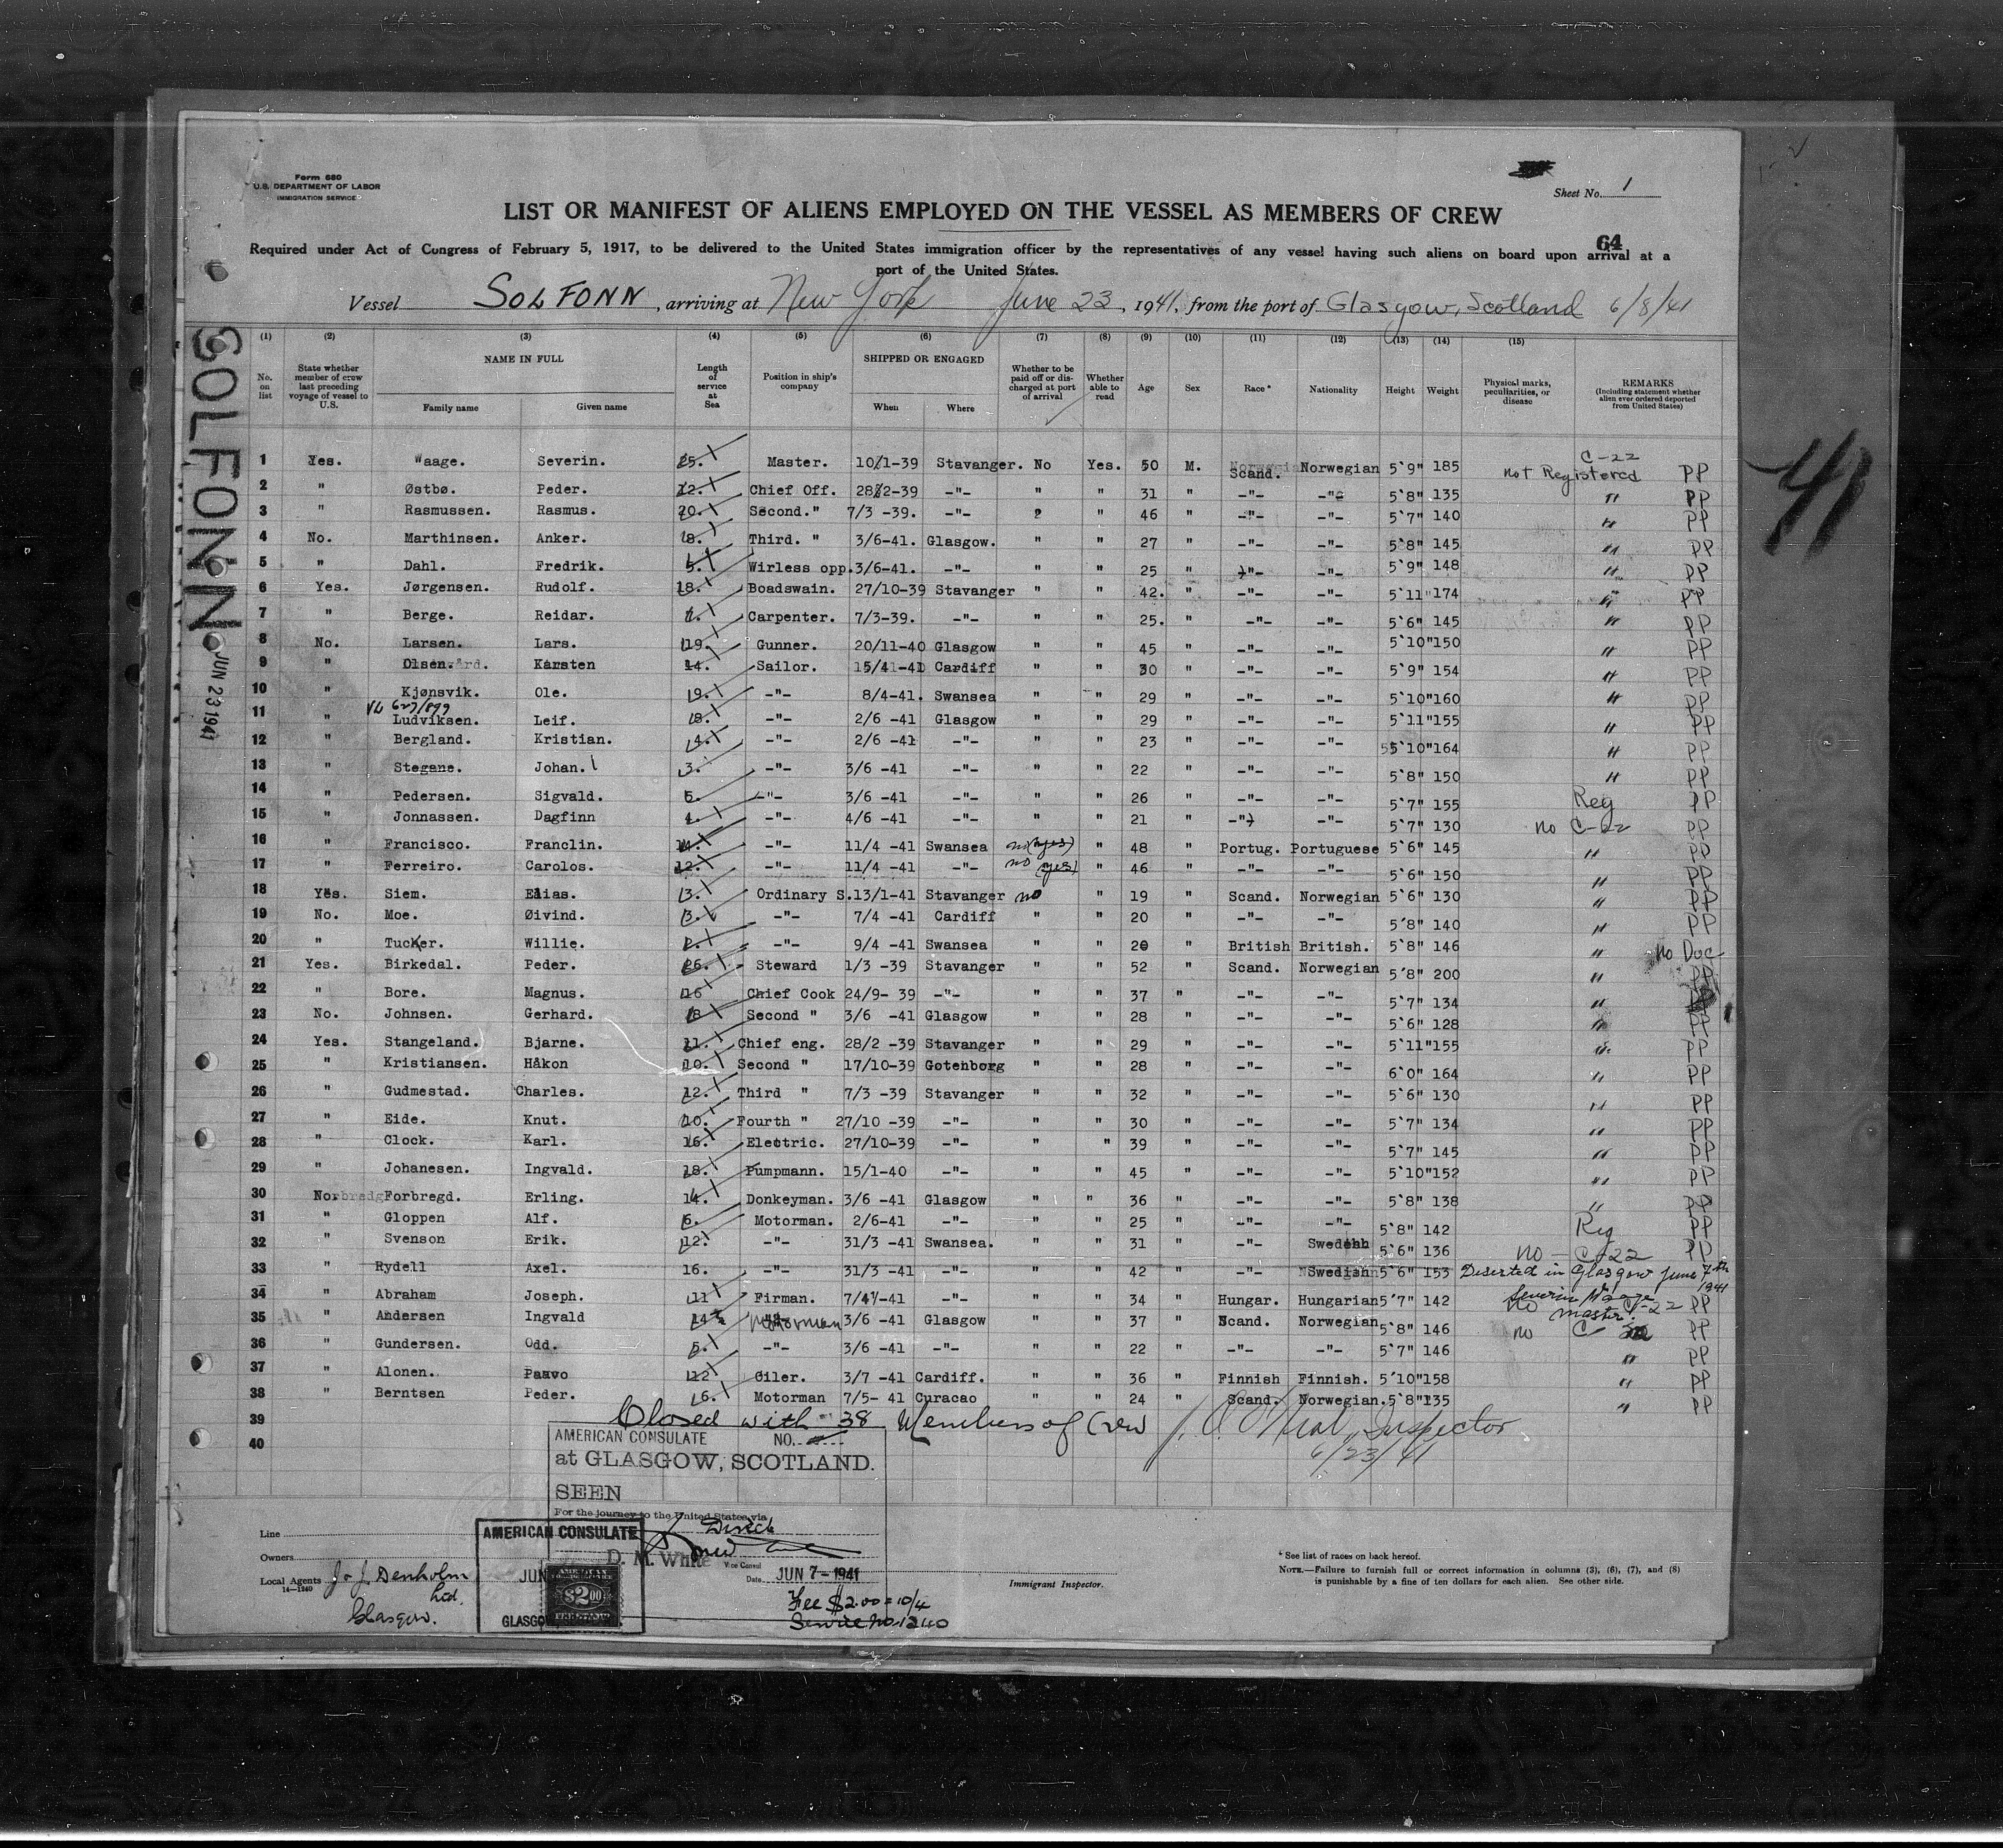 Form 680
U.S. DEPARTMENT OF LABOR
IMMIGRATION SERVICE
Sheet No. 1
LIST OR MANIFEST OF ALIENS EMPLOYED ON THE VESSEL AS MEMBERS OF CREW
64
Required under Act of Congress of February 5, 1917, to be delivered to the United States immigration officer by the representatives of any vessel having such aliens on board upon arrival at a
port of the United States.
Vessel SOLFONN, arriving at New York June 23, 1941, from the port of Glasgow, Scotland 6/8/41
SOLFONN
JUN 23 1941
41
(1) (2) (3) (4) (5) (6) (7) (8) (9) (10) (11) (12) (13) (14) (15)
No. on list
State whether member of crew last preceding voyage of vessel to U.S.
NAME IN FULL
Family name Given name
Length of service at Sea
Position in ship's company
SHIPPED OR ENGAGED
When Where
Whether to be paid off or discharged at port of arrival
Whether able to read
Age Sex Race* Nationality Height Weight
Physical marks, peculiarities, or disease
REMARKS
(Including statement whether alien ever ordered deported from United States)
C-22
1 Yes. Waage. Severin. 25. Master. 10/1-39 Stavanger. No Yes. 50 M. Scand. Norwegian 5'9" 185 not Registered PP
2 " Østbø. Peder. 12. Chief Off. 28/2-39 -"- " " 31 " -"- -"- 5'8" 135 " PP
3 " Rasmussen. Rasmus. 20. Second." 7/3 -39. -"- " " 46 " -"- -"- 5'7" 140 " PP
4 No. Marthinsen. Anker. 8. Third. " 3/6-41. Glasgow. " " 27 " -"- -"- 5'8" 145 " PP
5 " Dahl. Fredrik. 5. Wirless opp. 3/6-41. -"- " " 25 " -"- -"- 5'9" 148 " PP
6 Yes. Jørgensen. Rudolf. 18. Boadswain. 27/10-39 Stavanger " " 42. " -"- -"- 5'11" 174 " PP
7 " Berge. Reidar. Carpenter. 7/3-39. -"- " " 25. " -"- -"- 5'6" 145 " PP
8 No. Larsen. Lars. 19. Gunner. 20/11-40 Glasgow " " 45 " -"- -"- 5'10" 150 " PP
9 " Olsen. Karsten 14. Sailor. 15/4-41 Cardiff " " 30 " -"- -"- 5'9" 154 " PP
10 " Kjønsvik. Ole. 9. -"- 8/4-41. Swansea " " 29 " -"- -"- 5'10" 160 " PP
11 " Ludviksen. Leif. 8. -"- 2/6 -41 Glasgow " " 29 " -"- -"- 5'11" 155 " PP
12 " Bergland. Kristian. 4. -"- 2/6 -41 -"- " " 23 " -"- -"- 5'10" 164 " PP
13 " Stegane. Johan. 3. -"- 3/6 -41 -"- " " 22 " -"- -"- 5'8" 150 " PP
14 " Pedersen. Sigvald. 5. -"- 3/6 -41 -"- " " 26 " -"- -"- 5'7" 155 Reg PP
15 " Jonnassen. Dagfinn 4. -"- 4/6 -41 -"- " " 21 " -"- -"- 5'7" 130 no C-22 PP
16 " Francisco. Franclin. 14. -"- 11/4 -41 Swansea no (yes) " 48 " Portug. Portuguese 5'6" 145 " PP
17 " Ferreiro. Carolos. 12. -"- 11/4 -41 -"- no (yes) " 46 " -"- -"- 5'6" 150 " PP
18 Yes. Siem. Elias. 3. Ordinary S. 13/1-41 Stavanger no " 19 " Scand. Norwegian 5'6" 130 " PP
19 No. Moe. Øivind. 3. -"- 7/4 -41 Cardiff " " 20 " -"- -"- 5'8" 140 " PP
20 " Tucker. Willie. -"- 9/4 -41 Swansea " " 20 " British British. 5'8" 146 " no Doc
21 Yes. Birkedal. Peder. 26. Steward 1/3 -39 Stavanger " " 52 " Scand. Norwegian 5'8" 200 " PP
22 " Bore. Magnus. 16 Chief Cook 24/9- 39 -"- " " 37 " -"- -"- 5'7" 134 "
23 No. Johnsen. Gerhard. 8 Second " 3/6 -41 Glasgow " " 28 " -"- -"- 5'6" 128 " PP
24 Yes. Stangeland. Bjarne. 11. Chief eng. 28/2 -39 Stavanger " " 29 " -"- -"- 5'11" 155 " PP
25 " Kristiansen. Håkon 10. Second " 17/10-39 Gotenborg " " 28 " -"- -"- 6'0" 164 " PP
26 " Gudmestad. Charles. 12. Third " 7/3 -39 Stavanger " " 32 " -"- -"- 5'6" 130 " PP
27 " Eide. Knut. 10. Fourth " 27/10 -39 -"- " " 30 " -"- -"- 5'7" 134 " PP
28 " Clock. Karl. 16. Electric. 27/10-39 -"- " " 39 " -"- -"- 5'7" 145 " PP
29 " Johanesen. Ingvald. 18. Pumpmann. 15/1-40 -"- " " 45 " -"- -"- 5'10" 152 " PP
30 No. Forbregd. Erling. 14. Donkeyman. 3/6 -41 Glasgow " " 36 " -"- -"- 5'8" 138 " PP
31 " Gloppen Alf. 6. Motorman. 2/6-41 -"- " " 25 " -"- -"- 5'8" 142 Reg PP
32 " Svenson Erik. 12. -"- 31/3 -41 Swansea. " " 31 " -"- Swedish 5'6" 136 no - C-22 PP
33 " Rydell Axel. 16. -"- 31/3 -41 -"- " " 42 " -"- Swedish 5'6" 153 Deserted in Glasgow June 7th 1941
Severin Waage master.
34 " Abraham Joseph. 11 Firman. 7/4-41 -"- " " 34 " Hungar. Hungarian 5'7" 142 no C-22 PP
35 " Andersen Ingvald 14 Motorman 3/6 -41 Glasgow " " 37 " Scand. Norwegian 5'8" 146 no C PP
36 " Gundersen. Odd. 5. -"- 3/6 -41 -"- " " 22 " -"- -"- 5'7" 146 " PP
37 " Alonen. Paavo 12 Oiler. 3/7 -41 Cardiff. " " 36 " Finnish Finnish. 5'10" 158 " PP
38 " Berntsen Peder. 6. Motorman 7/5- 41 Curacao " " 24 " Scand. Norwegian. 5'8" 135 " PP
39 Closed with 38 Members of Crew Inspector
40 6/23/41
AMERICAN CONSULATE NO.
at GLASGOW, SCOTLAND.
SEEN
For the journey to the United States via
Direct
D. M. White Vice Consul
Date JUN 7-1941
Fee $2.00 = 10/4
Service No. 1240
AMERICAN CONSULATE
JUN
AMERICAN
$2.00
GLASGOW
Line
Owners
Local Agents J. & J. Denholm Ltd.
14-1240
Glasgow.
Immigrant Inspector.
* See list of races on back hereof.
NOTE.—Failure to furnish full or correct information in columns (3), (6), (7), and (8)
is punishable by a fine of ten dollars for each alien. See other side.